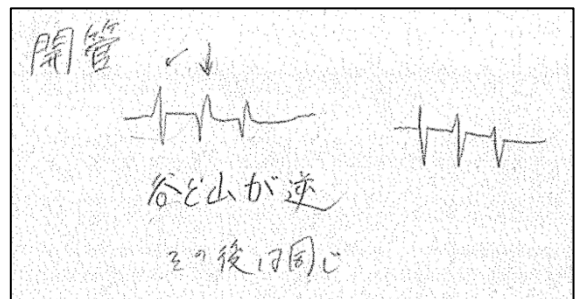 開管
谷と山が逆
その後は同じ